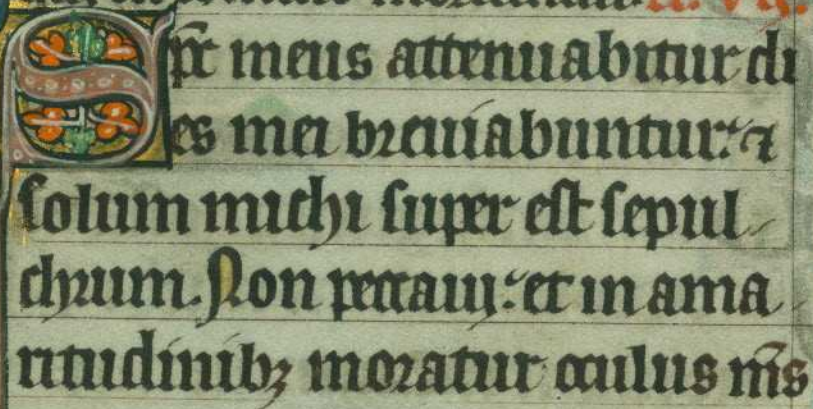 Spc̄ meus attenuabitur di
es mei breuiabuntur: ⁊
solum michi super est sepul
chrum. Non peccauy: et in ama
ritudinibꝫ moratur oculus ms̄